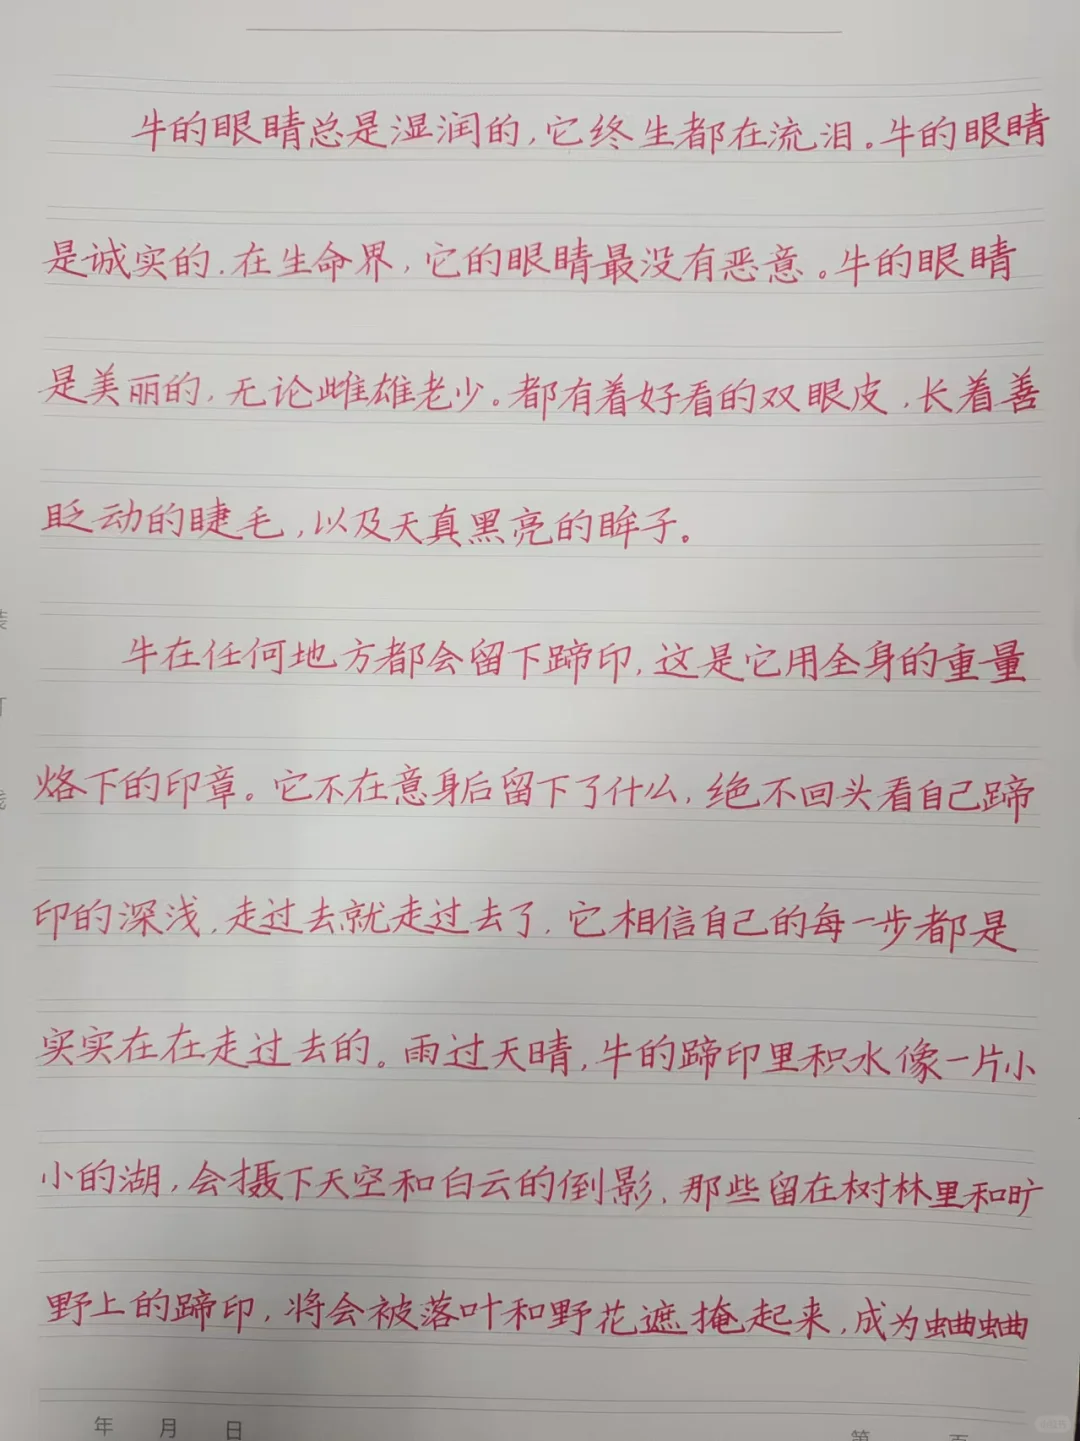 牛的眼睛总是湿润的，它终生都在流泪。牛的眼睛
是诚实的，在生命界，它的眼睛最没有恶意。牛的眼睛
是美丽的，无论雌雄老少。都有着好看的双眼皮，长着善
眨动的睫毛，以及天真黑亮的眸子。
牛在任何地方都会留下蹄印，这是它用全身的重量
烙下的印章。它不在意身后留下了什么，绝不回头看自己蹄
印的深浅，走过去就走过去了，它相信自己的每一步都是
实实在在走过去的。雨过天晴，牛的蹄印里积水像一片小
小的湖，会摄下天空和白云的倒影，那些留在树林里和旷
野上的蹄印，将会被落叶和野花遮掩起来，成为蛐蛐
年 月 日
第 页